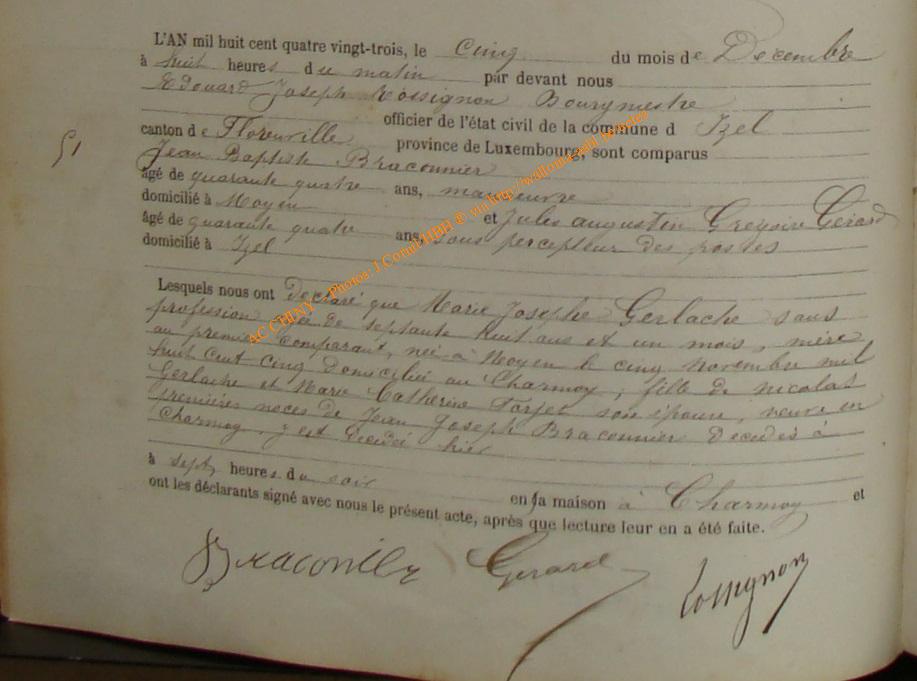 L'AN mil huit cent quatre vingt-trois, le cinq du mois de Decembre
à huit heures du matin par devant nous
Edouard Joseph Rossignon Bourgmestre
officier de l'état civil de la commune d Izel
canton de Florenville province de Luxembourg, sont comparus
51
Jean Baptiste Braconnier
âgé de quarante quatre ans, manoeuvre
domicilié à Moyen et Jules augustin Grégoire Gérard
âgé de quarante quatre ans, sous percepteur des postes
domicilié à Izel
Lesquels nous ont déclaré que Marie Josephe Gerlache sans
profession agée de septante huit ans et un mois, mère
au premier comparant, née à Moyen le cinq novembre mil
huit cent cinq domiciliée au Charmoy, fille de nicolas
Gerlache et Marie Catherine son épouse, veuve en
premières noces de Jean Joseph Braconnier décédés à
Charmoy, y est décédée hier
à sept heures du soir en sa maison à Charmoy et
ont les déclarants signé avec nous le présent acte, après que lecture leur en a été faite.
Braconnier Gerard Rossignon
AC CHINY - Photos: J.Comblen